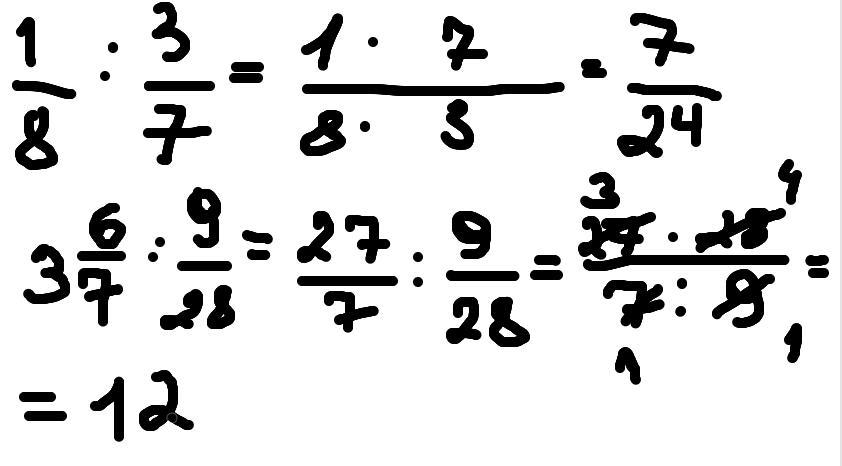 1/8 : 3/7 = (1 · 7)/(8 · 3) = 7/24
3 6/7 : 9/28 = 27/7 : 9/28 = (27 · 28)/(7 : 9) 3 4 1 1 =
= 12